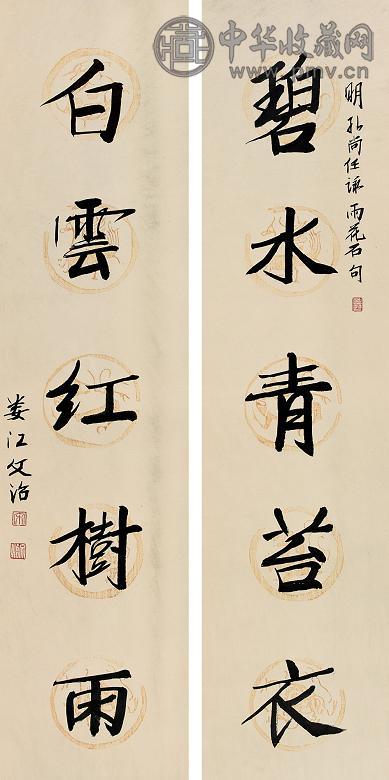 中华收藏网
www.pmv.cn
明孔尚任詠雨花石句
碧水青苔衣
白雲红樹雨
娄江文治